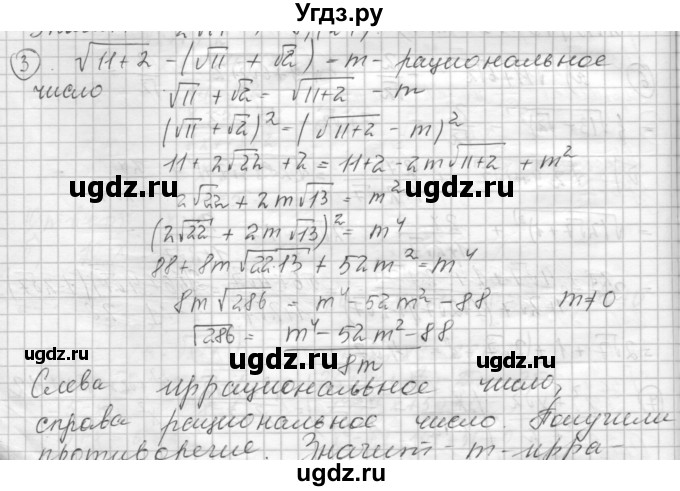 Угдз.ру
3. √11+2 - (√11 + √2) = m - рациональное
число √11 + √2 = √11+2 - m
(√11 + √2)² = (√11+2 - m)²
11 + 2√22 + 2 = 11+2 - 2m√11+2 + m²
ugdz.ru ugdz.ru
2√22 + 2m√13 = m²
(2√22 + 2m√13)² = m⁴
88 + 8m√22·13 + 52m² = m⁴
ugdz.ru
8m√286 = m⁴ - 52m² - 88 m≠0
√286 = m⁴ - 52m² - 88
8m
ugdz.ru ugdz.ru ugdz.ru
Слева иррациональное число,
справа рациональное число. Получили
противоречие. Значит m-ирра-
ugdz.ru